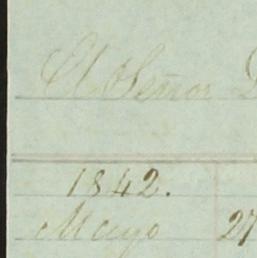 El Señor D
1842.
Mayo 27